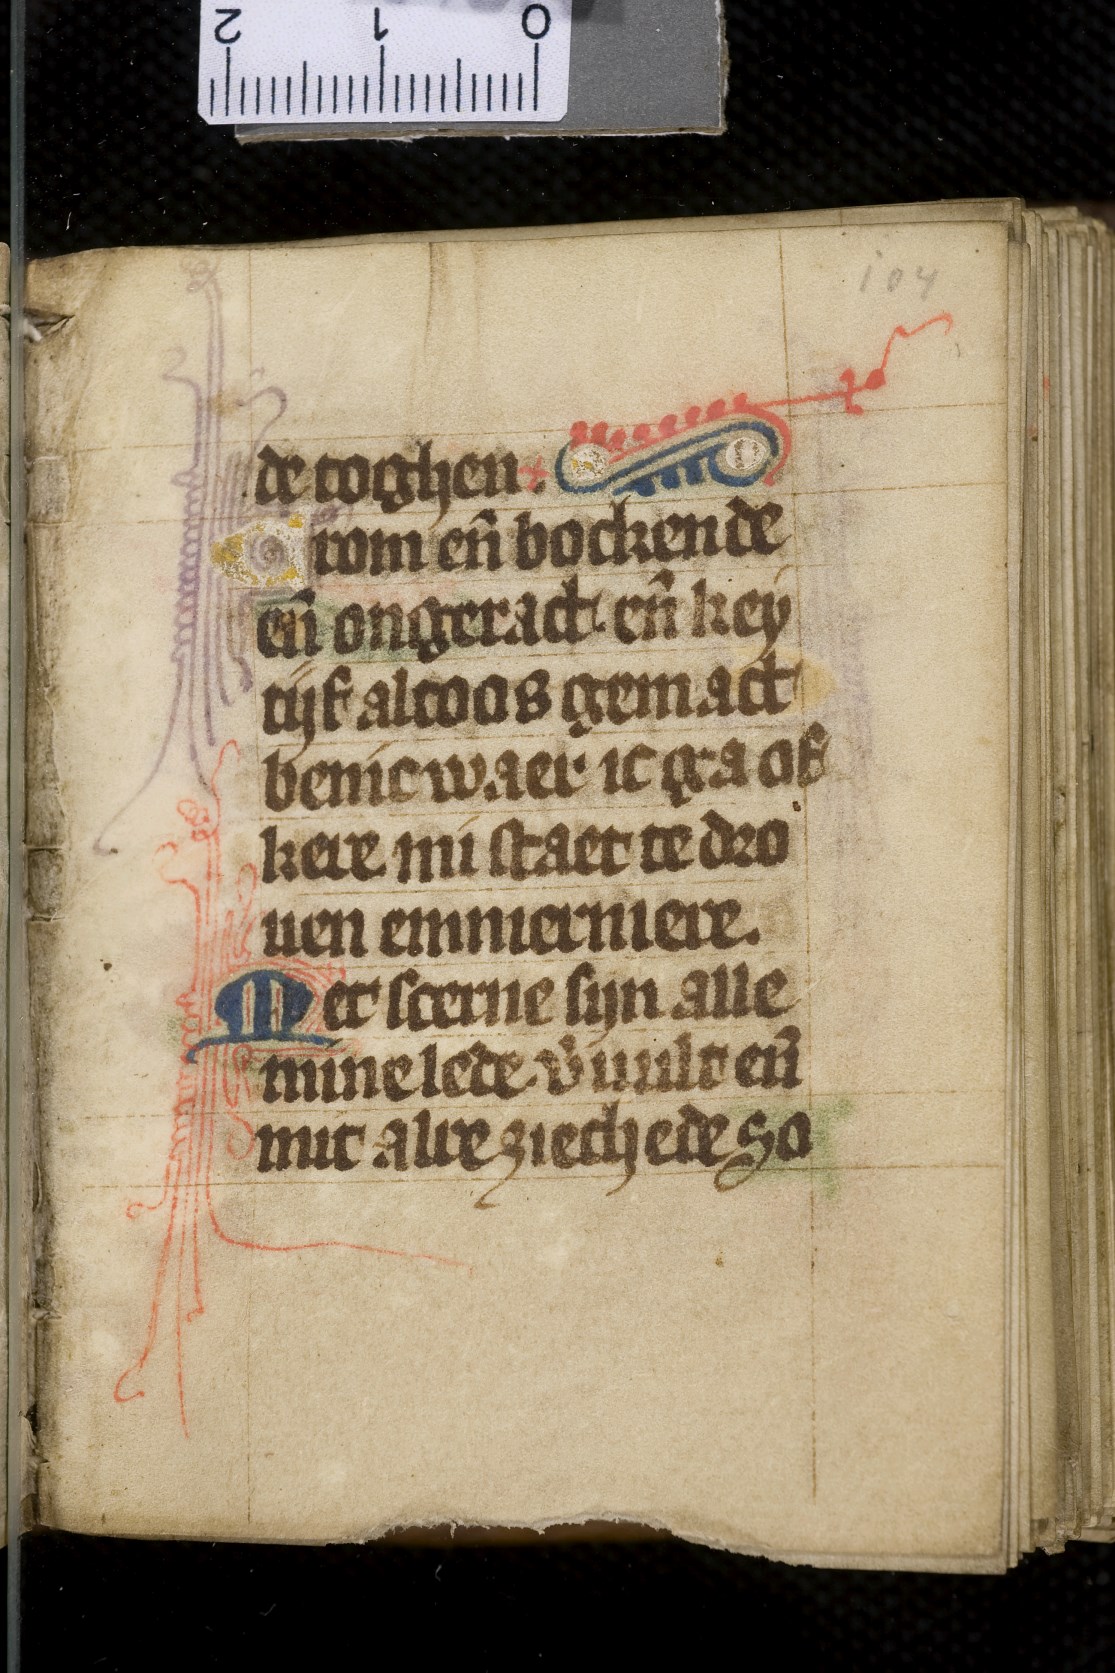 2 1 0
104
de toghen.
C rom en̄ bockende
en̄ ongeract. en̄ key
tijf altoos gemact
benic waer ic ga of
kere mi staet te dro
uen emmermere.
Met scerne sijn alle
mine lede v̄uult en̄
mit alre ziechede so